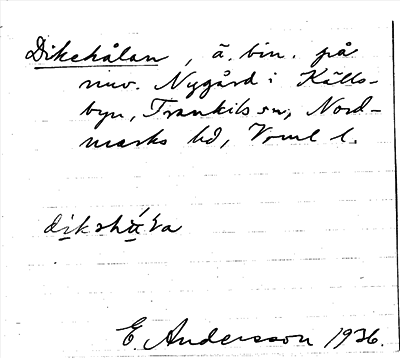 Dikehålan, ä. bin. på
nuv. Nygård i Källs-
byn, Trankils sn, Nord-
marks hd, Vrml l.
E. Andersson 1936.